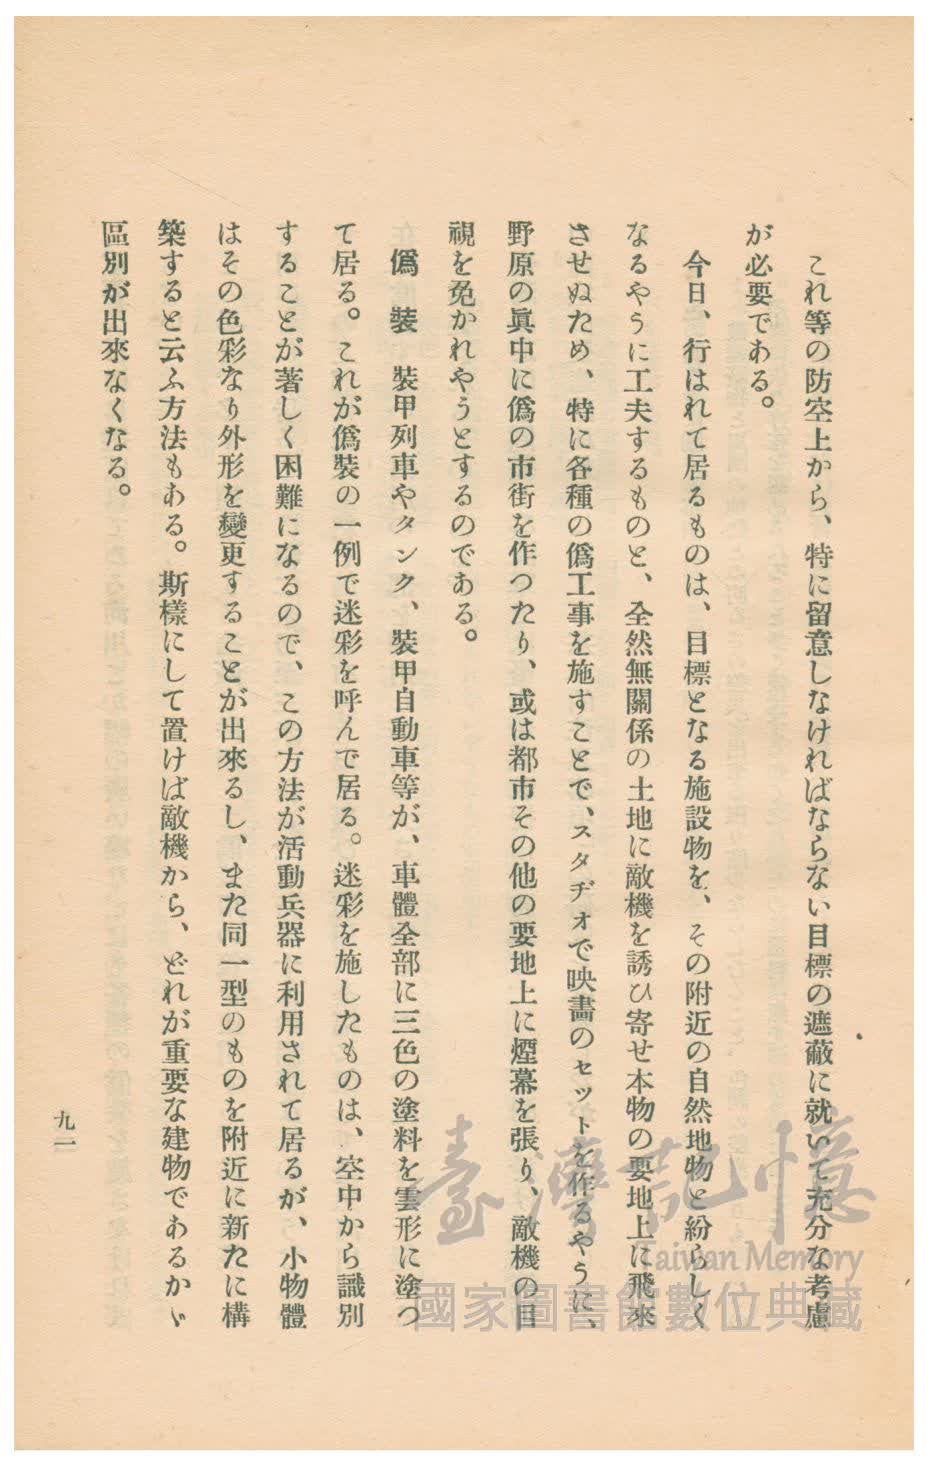 これ等の防空上から、特に留意しなければならない目標の遮蔽に就いて充分な考慮
が必要である。
今日、行はれて居るものは、目標となる施設物を、その附近の自然地物と紛らしく
なるやうに工夫するものと、全然無關係の土地に敵機を誘ひ寄せ本物の要地上に飛來
させぬため、特に各種の僞工事を施すことで、スタヂオで映畵のセットを作るやうに、
野原の眞中に僞の市街を作つたり、或は都市その他の要地上に煙幕を張り、敵機の目
視を免かれやうとするのである。
僞裝　裝甲列車やタンク、裝甲自動車等が、車體全部に三色の塗料を雲形に塗つ
て居る。これが僞裝の一例で迷彩を呼んで居る。迷彩を施したものは、空中から識別
することが著しく困難になるので、この方法が活動兵器に利用されて居るが、小物體
はその色彩なり外形を變更することが出來るし、また同一型のものを附近に新たに構
築すると云ふ方法もある。斯樣にして置けば敵機から、どれが重要な建物であるかゞ
區別が出來なくなる。
九一
臺灣記憶
Taiwan Memory
國家圖書館數位典藏